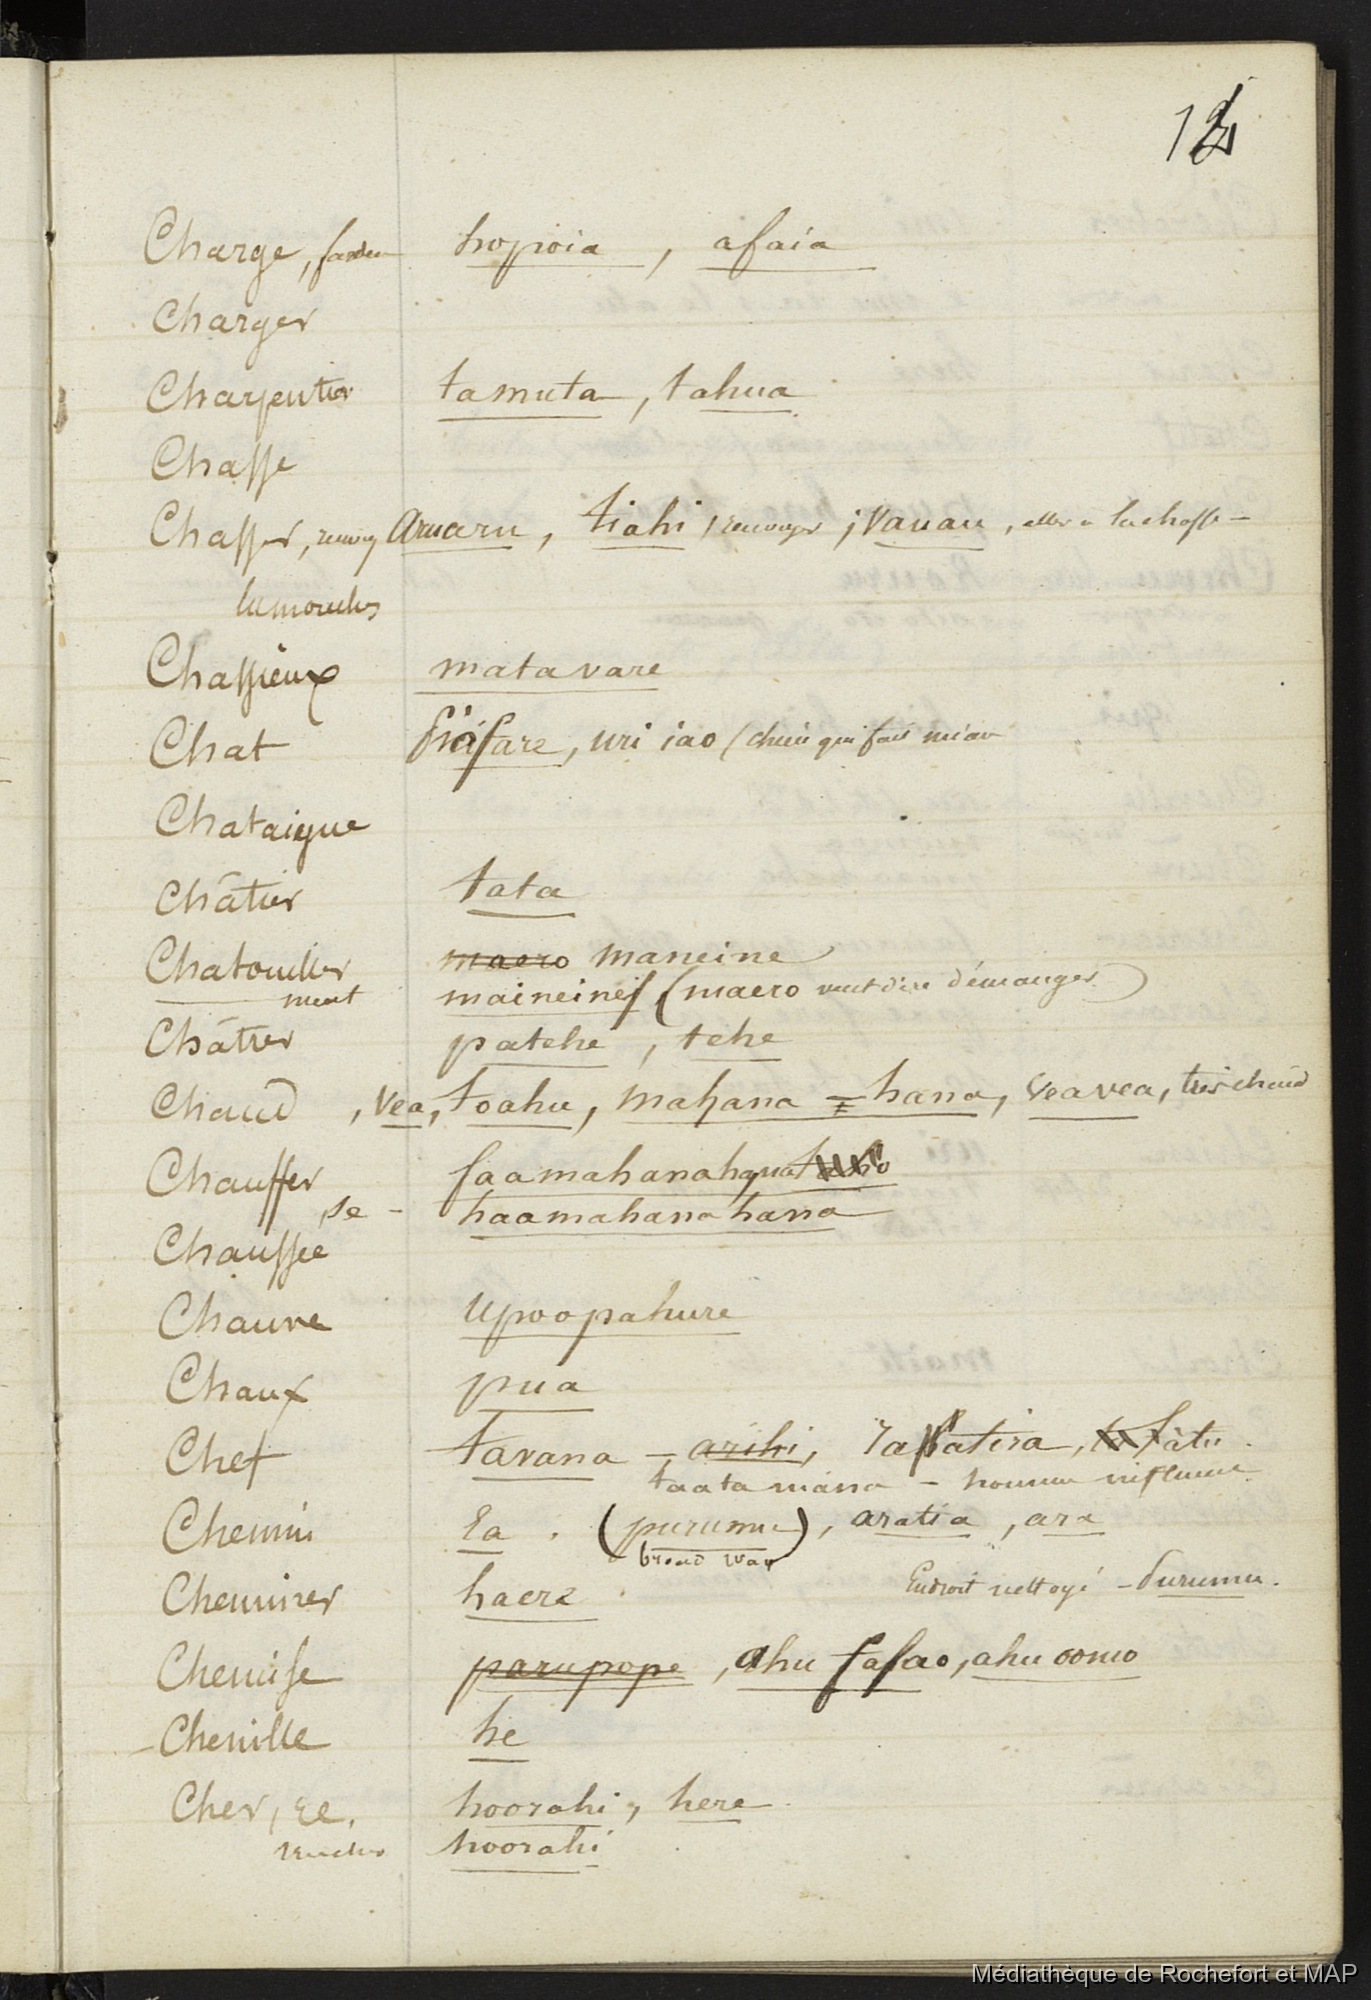 12
Charge, fardeau hopoia, afaia
Charger
Charpentier tamuta, tahua
Chasse
Chasser, renvoy Aruaru, tiahi, renvoyer; Vauau, aller à la chasse –
les mouches
Chassieux matavare
Chat fiifare, uri iao (chien qui fait miaou
Chataigne
Châtier tata
Chatouiller maero maneine
ment maineine (maero veut dire démanger)
Châtrer patehe, tehe
Chaud, vea, toahu, mahana = hana, veavea, très chaud
Chauffer faamahanahana
se – haamahanahana
Chaussée
Chauve Upoopahure
Chaux pua
Chef tavana – arihi, raatira, fatu
taata mana – homme influent
Chemin Ea. (purumu), aratia, ara
broad way
Cheminer haere Endroit nettoyé – Purumu.
Chemise parupope, ahu fafao, ahu oomo
Chenille he
Cher, re. hoorahi, here
hoorahi
Médiathèque de Rochefort et MAP